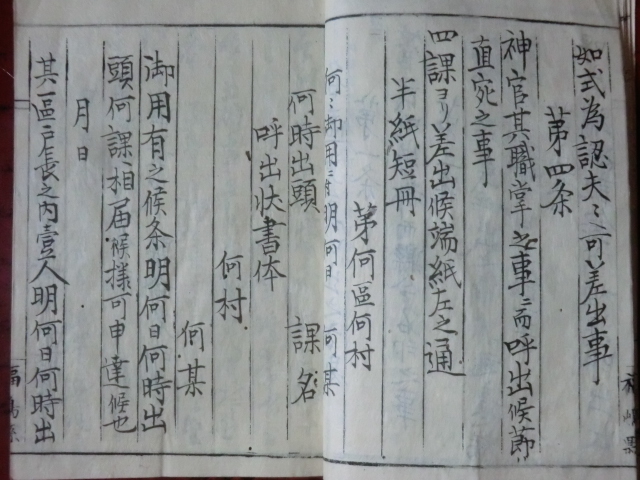 如式為認夫〻可差出事
第四条
神官其職掌之事ニ而呼出候節
直宛之事
四課ヨリ差出候端紙左之通
半紙短冊
第何區何村
何〻御用ニ付明何日 何某
何時出頭 課名
呼出状書体
何村
何某
御用有之候条明何日何時出
頭何課ヘ相届候様可申達候也
月日
其一區戸長之内壹人明何日何時出